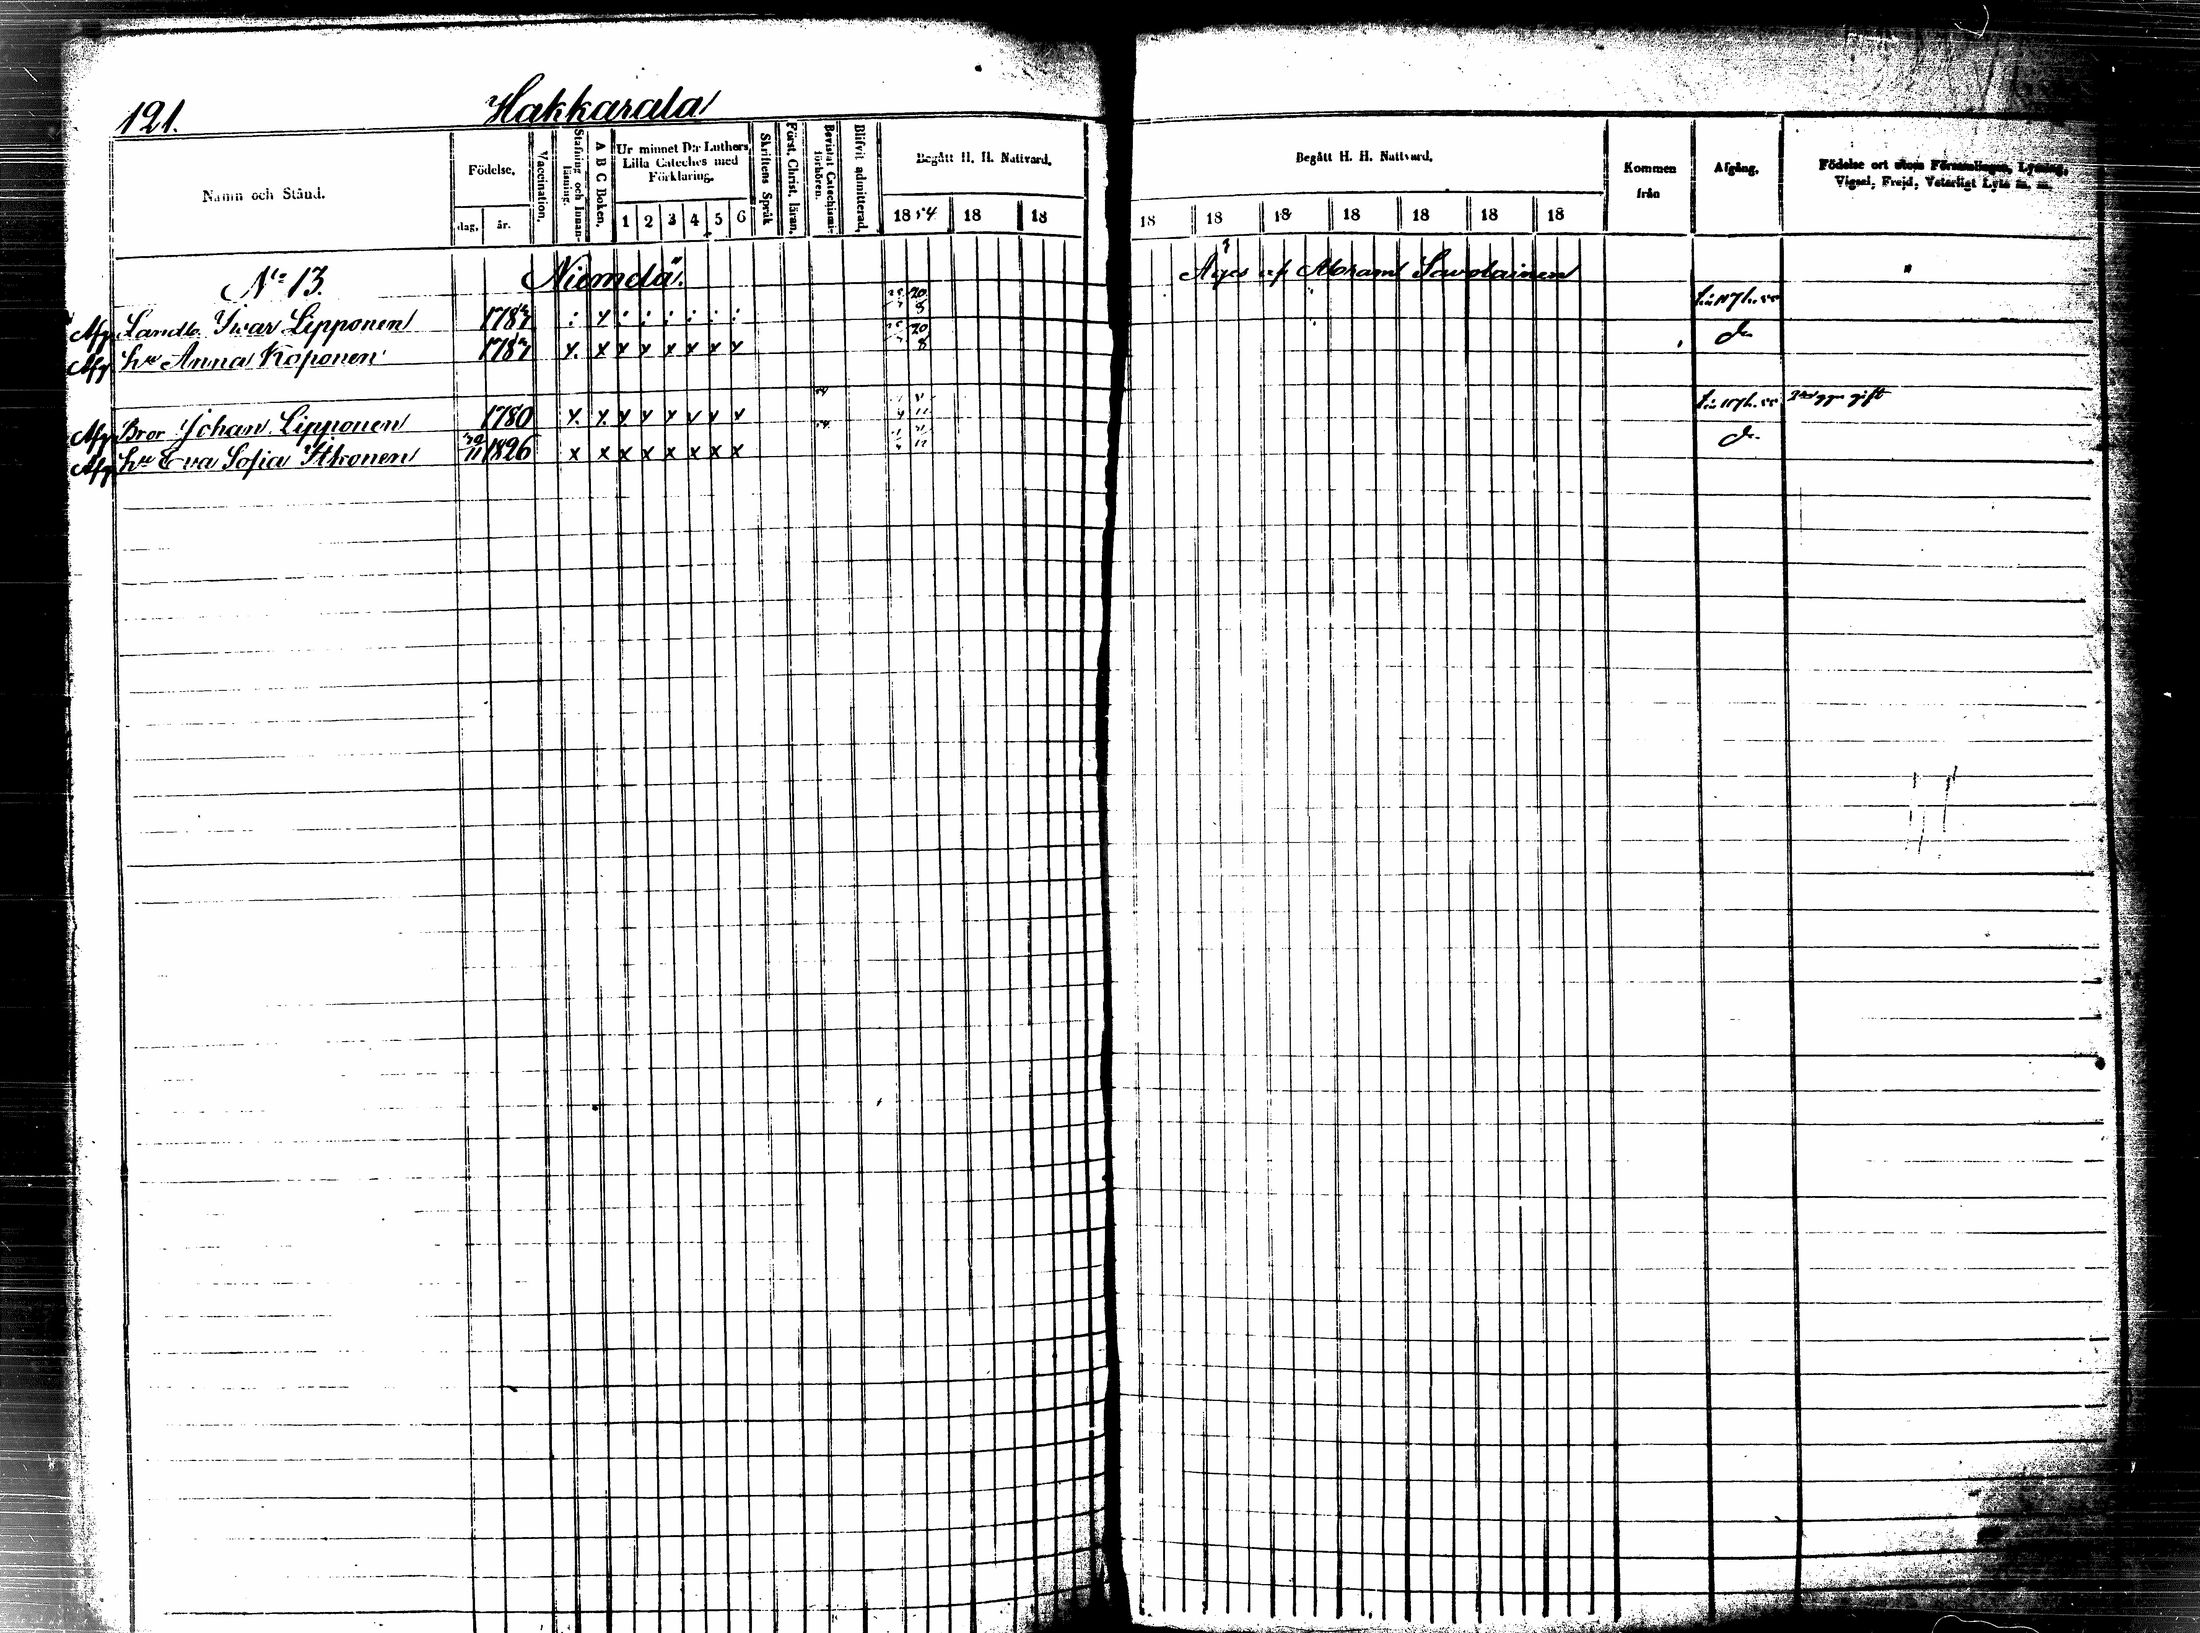 121.
Hakkarala
Namn och Stånd.
Födelse,
dag, år.
Vaccination.
Stafning och Innanläsning.
A B C Boken.
Ur minnet D:r Luthers
Lilla Cateches med
Förklaring.
1 2 3 4 5 6
Skriftens Språk
Först. Christ. läran.
Bevistat Catechismi-förhören.
Blifvit admitterad.
Begått H. H. Nattvard.
1854 18 18
Begått H. H. Nattvard.
18 18 18 18 18 18 18
Kommen
från
Afgång.
Födelse ort utom Församlingen, Lysning,
Vigsel, Frejd, Veterligt Lyte m. m.
No 13. Niemelä. Äges af Abram Savolainen
Afg Landb. Ivar Lipponen 1787 20 8
Afg hu Anna Koponen 1787 x x x x x x x x 20 8 do
Afg Bror Johan Lipponen 1780 x x x x x x x x 54 gift
Afg hu Eva Sofia Itkonen 1826 x x x x x x x x 54 do